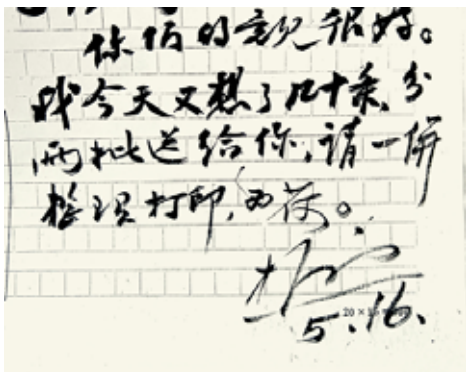 你们的意见很好。
我今天又想了几十条,分
两批送给你,请一併
整理打印,为荷。
5.16.
20 ×